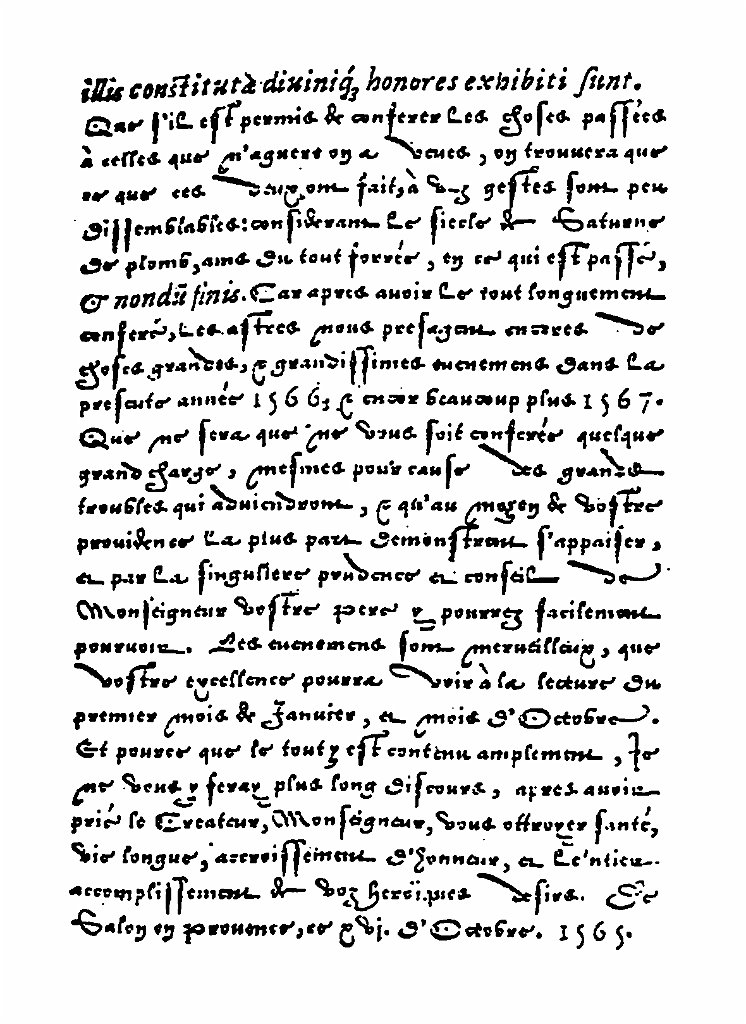 illis constituta diuiniq́; honores exhibiti sunt.
Que s'il est permis de conferer les choses passées
à celles que n'aguere on a veues, on trouuera que
ce que ces deux ont fait, à voz gestes sont peu
dissemblables: considerant le siecle de Saturne
de plomb, ains du tout forrée, en ce qui est passé,
& nondū finis. Car apres auoir le tout longuement
conferé, les astres nous presagent encores de
choses grandes, & grandissimes euenemens dans la
presente année 1566, & encor beaucoup plus 1567.
Que ne sera que ne vous soit conferée quelque
grand charge, mesmes pour cause des grands
troubles qui aduiendront, & qu'au moyen de vostre
prouidence la plus part demonstrent s'appaiser,
et par la singuliere prudence et conseil de
Monseigneur vostre pere y pourrez facilement
pouruoir. Les euenemens sont merueilleux, que
vostre excellence pourra voir à la lecture du
premier mois de Januier, et mois d'Octobre.
Et pource que le tout y est contenu amplement, Je
ne vous y feray plus long discours, apres auoir
prié le Createur, Monseigneur, vous ottroyer santé,
vie longue, accroissement d'honneur, et l'entier
accomplissement de voz heroiques desirs. De
Salon en Prouence, ce xvj. d'Octobre. 1565.